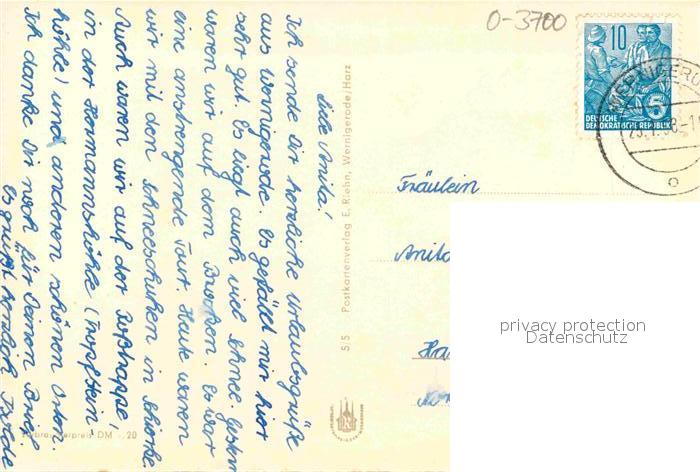 0-3700
10
5
DEUTSCHE
DEMOKRATISCHE REPUBLIK
WERNIGERO
Liebe Anita!
Ich sende Dir herzliche Urlaubsgrüße
aus Wernigerode. Es gefällt mir hier
sehr gut. Es liegt auch viel Schnee. Gestern
waren wir auf dem Brocken. Es war
eine anstrengende Tour. Heute waren
wir mit den Schneeschuhen in Schierke.
Auch waren wir auf der Roßtrappe,
in der Hermannshöhle (Tropfstein
höhle) und anderen schönen Orten.
Ich danke Dir noch für Deinen Brief
Es grüßt herzlich
5/5 Postkartenverlag E. Riehn, Wernigerode/Harz
Fräulein
Anita
Ha
privacy protection
Datenschutz
DM -.20